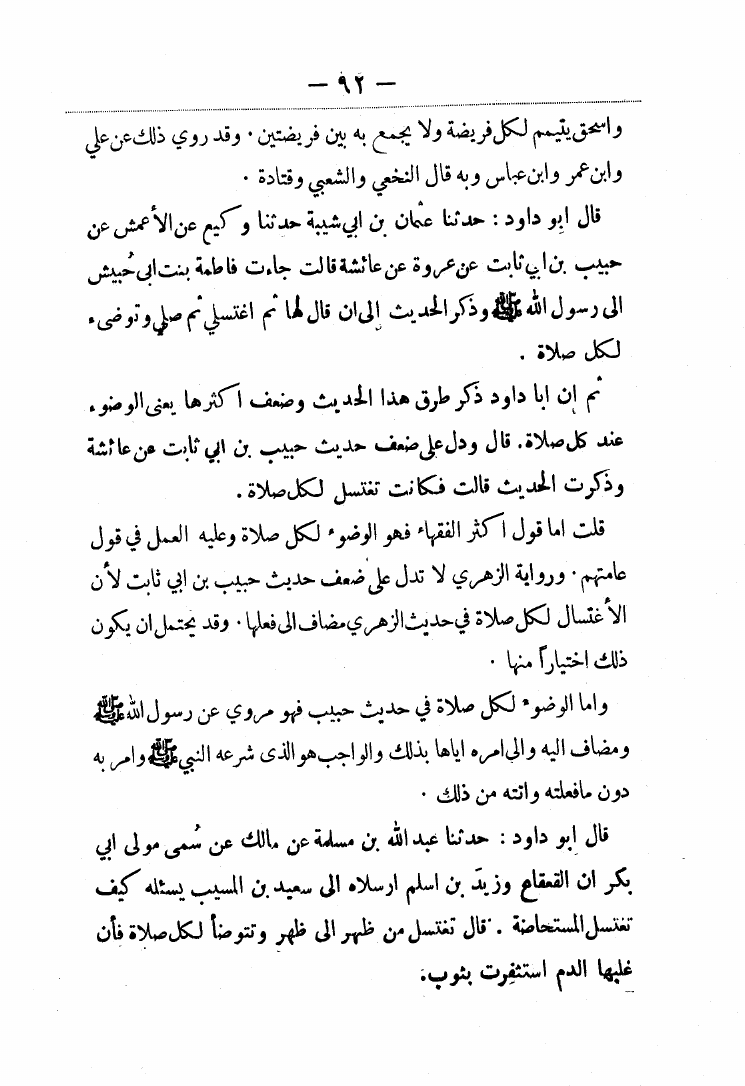 — ٩٢ —
واسحق يتيمم لكل فريضة ولا يجمع به بين فريضتين . وقد روي ذلك عن علي
وابن عمر وابن عباس وبه قال النخعي والشعبي وقتادة .
قال ابو داود : حدثنا عثمان بن ابي شيبة حدثنا وكيع عن الأعمش عن
حبيب بن ابي ثابت عن عروة عن عائشة قالت جاءت فاطمة بنت ابى حُبيش
الى رسول الله ﷺ وذكر الحديث إلى ان قال لها ثم اغتسلي ثم صلي وتوضىء
لكل صلاة .
ثم إن ابا داود ذكر طرق هذا الحديث وضعف اكثرها يعنى الوضوء
عند كل صلاة . قال ودل على ضعف حديث حبيب بن ابي ثابت عن عائشة
وذكرت الحديث قالت فكانت تغتسل لكل صلاة .
قلت اما قول اكثر الفقهاء فهو الوضوء لكل صلاة وعليه العمل في قول
عامتهم . ورواية الزهري لا تدل على ضعف حديث حبيب بن ابي ثابت لأن
الأغتسال لكل صلاة في حديث الزهري مضاف الى فعلها . وقد يحتمل ان يكون
ذلك اختياراً منها .
واما الوضوء لكل صلاة في حديث حبيب فهو مروي عن رسول الله ﷺ
ومضاف اليه والى امره اياها بذلك والواجب هو الذى شرعه النبي ﷺ وامر به
دون مافعلته واتته من ذلك .
قال ابو داود : حدثنا عبد الله بن مسلمة عن مالك عن سُمى مولى ابي
بكر ان القعقاع وزيدَ بن اسلم ارسلاه الى سعيد بن المسيب يسئله كيف
تغتسل المستحاضة . قال تغتسل من ظهر الى ظهر وتتوضأ لكل صلاة فأن
غلبها الدم استثفِرت بثوب .